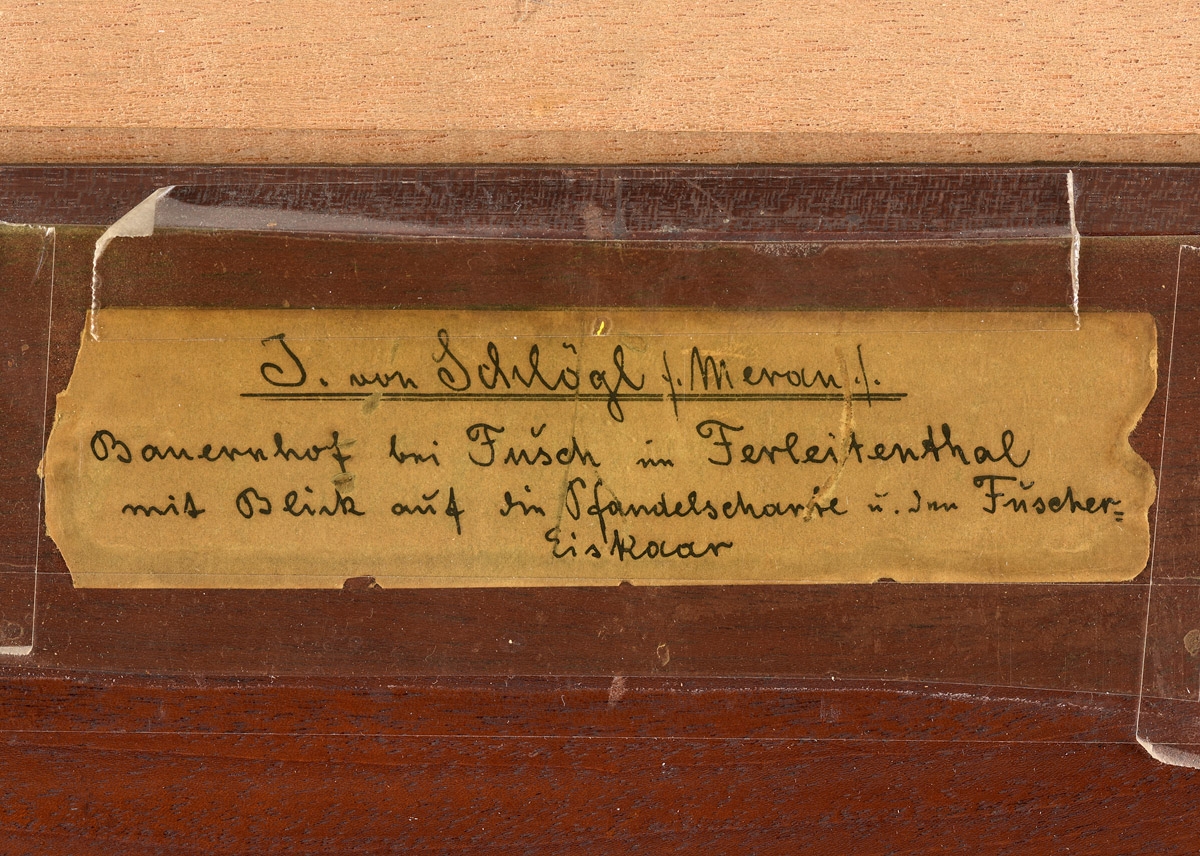 J. von Schlögl /. Meran ./.
Bauernhof bei Fusch im Ferleitenthal
mit Blick auf die Pfandelscharte u. den Fuscher=
Eiskaar